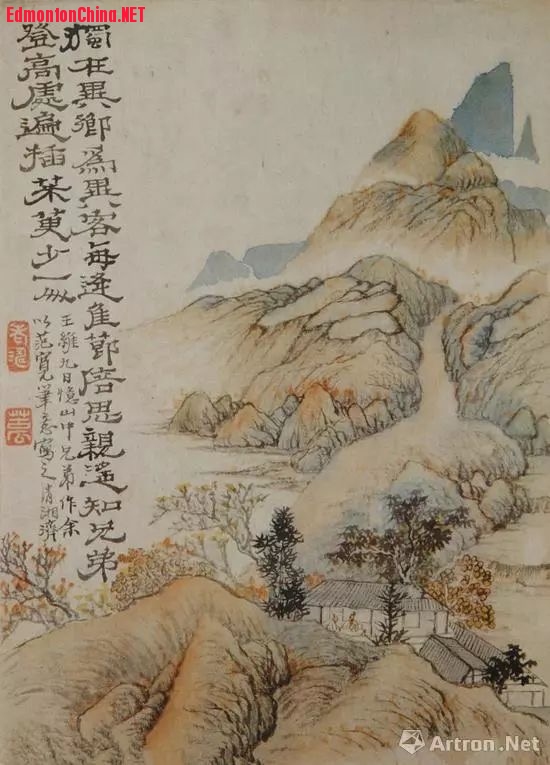 EdmontonChina.NET
獨在異鄉為異客每逢佳節倍思親遙知兄弟
登高處遍插茱萸少一人
王維九日憶山中兄弟作余
以范寬筆意寫之清湘濟
Artron.Net